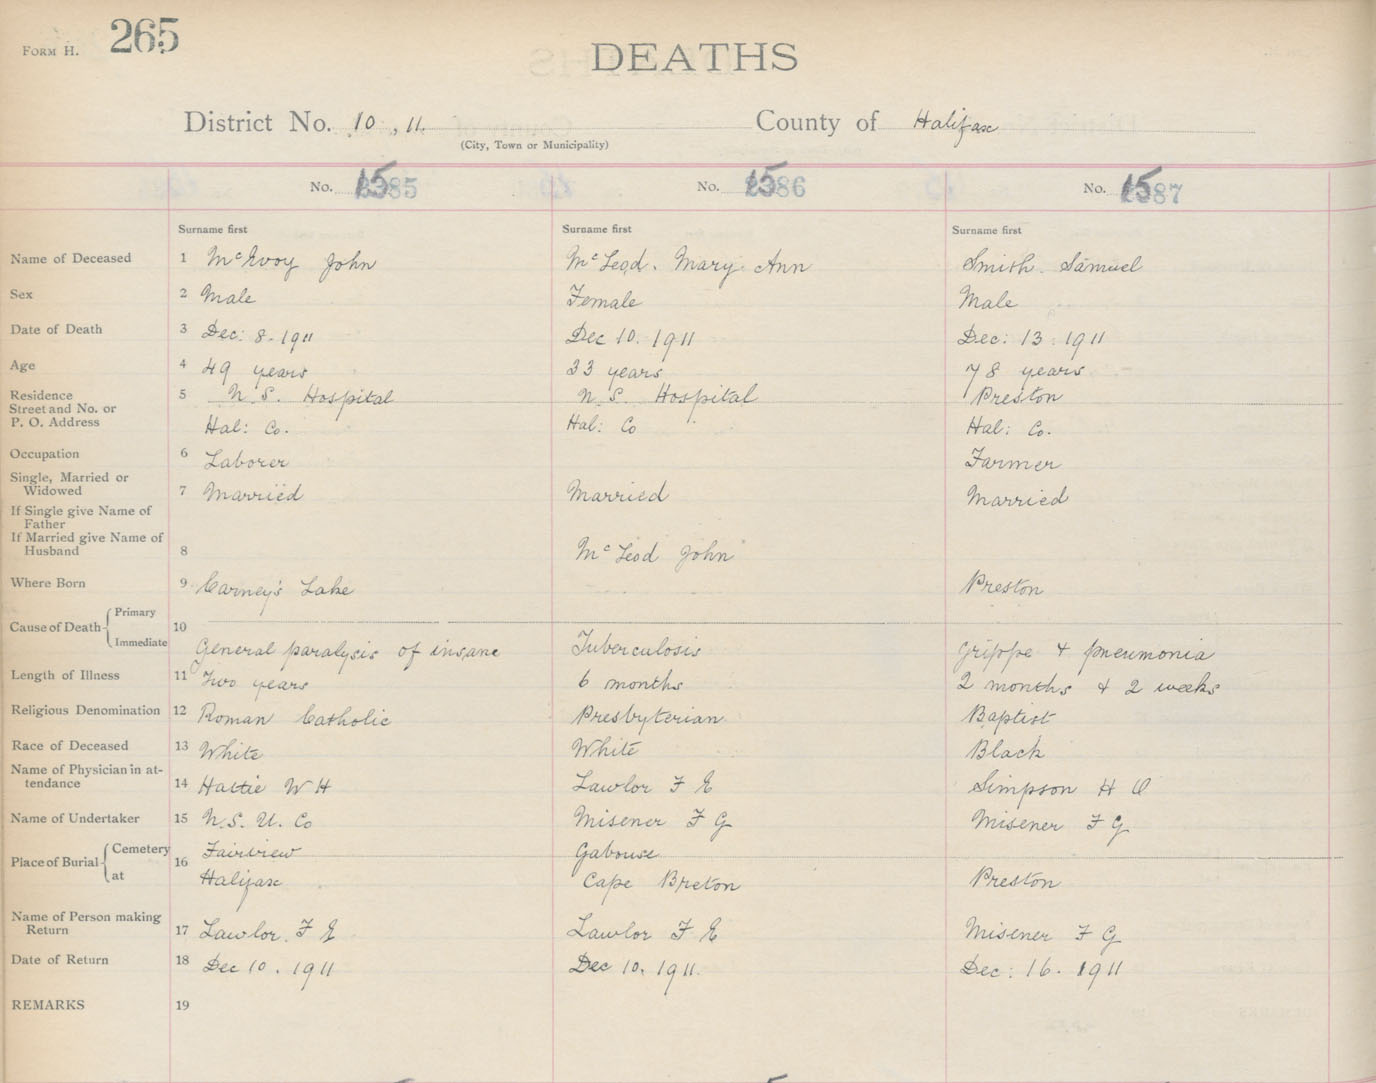 FORM H. 265
DEATHS
District No. 10, 11. County of Halifax
(City, Town or Municipality)
No. 1585 No. 1586 No. 1587
Surname first Surname first Surname first
Name of Deceased 1 McEvoy John McLeod. Mary Ann Smith. Samuel
Sex 2 Male Female Male
Date of Death 3 Dec: 8. 1911 Dec 10. 1911 Dec: 13. 1911
Age 4 49 years 33 years 78 years
Residence 5 N.S. Hospital N.S. Hospital Preston
Street and No. or
P. O. Address Hal: Co. Hal: Co Hal: Co.
Occupation 6 Laborer Farmer
Single, Married or
Widowed 7 Married Married Married
If Single give Name of
Father
If Married give Name of
Husband 8 McLeod John
Where Born 9 Carney's Lake Preston
Cause of Death Primary 10
Immediate General paralysis of insane Tuberculosis Grippe & pneumonia
Length of Illness 11 Two years 6 months 2 months & 2 weeks
Religious Denomination 12 Roman Catholic Presbyterian Baptist
Race of Deceased 13 White White Black
Name of Physician in at-
tendance 14 Hattie W H Lawlor F E Simpson H O
Name of Undertaker 15 N.S. U. Co Misener F G Misener F G
Place of Burial Cemetery 16 Fairview Gabouse
at Halifax Cape Breton Preston
Name of Person making
Return 17 Lawlor. F E Lawlor F E Misener F G
Date of Return 18 Dec 10. 1911 Dec 10. 1911. Dec: 16. 1911
REMARKS 19